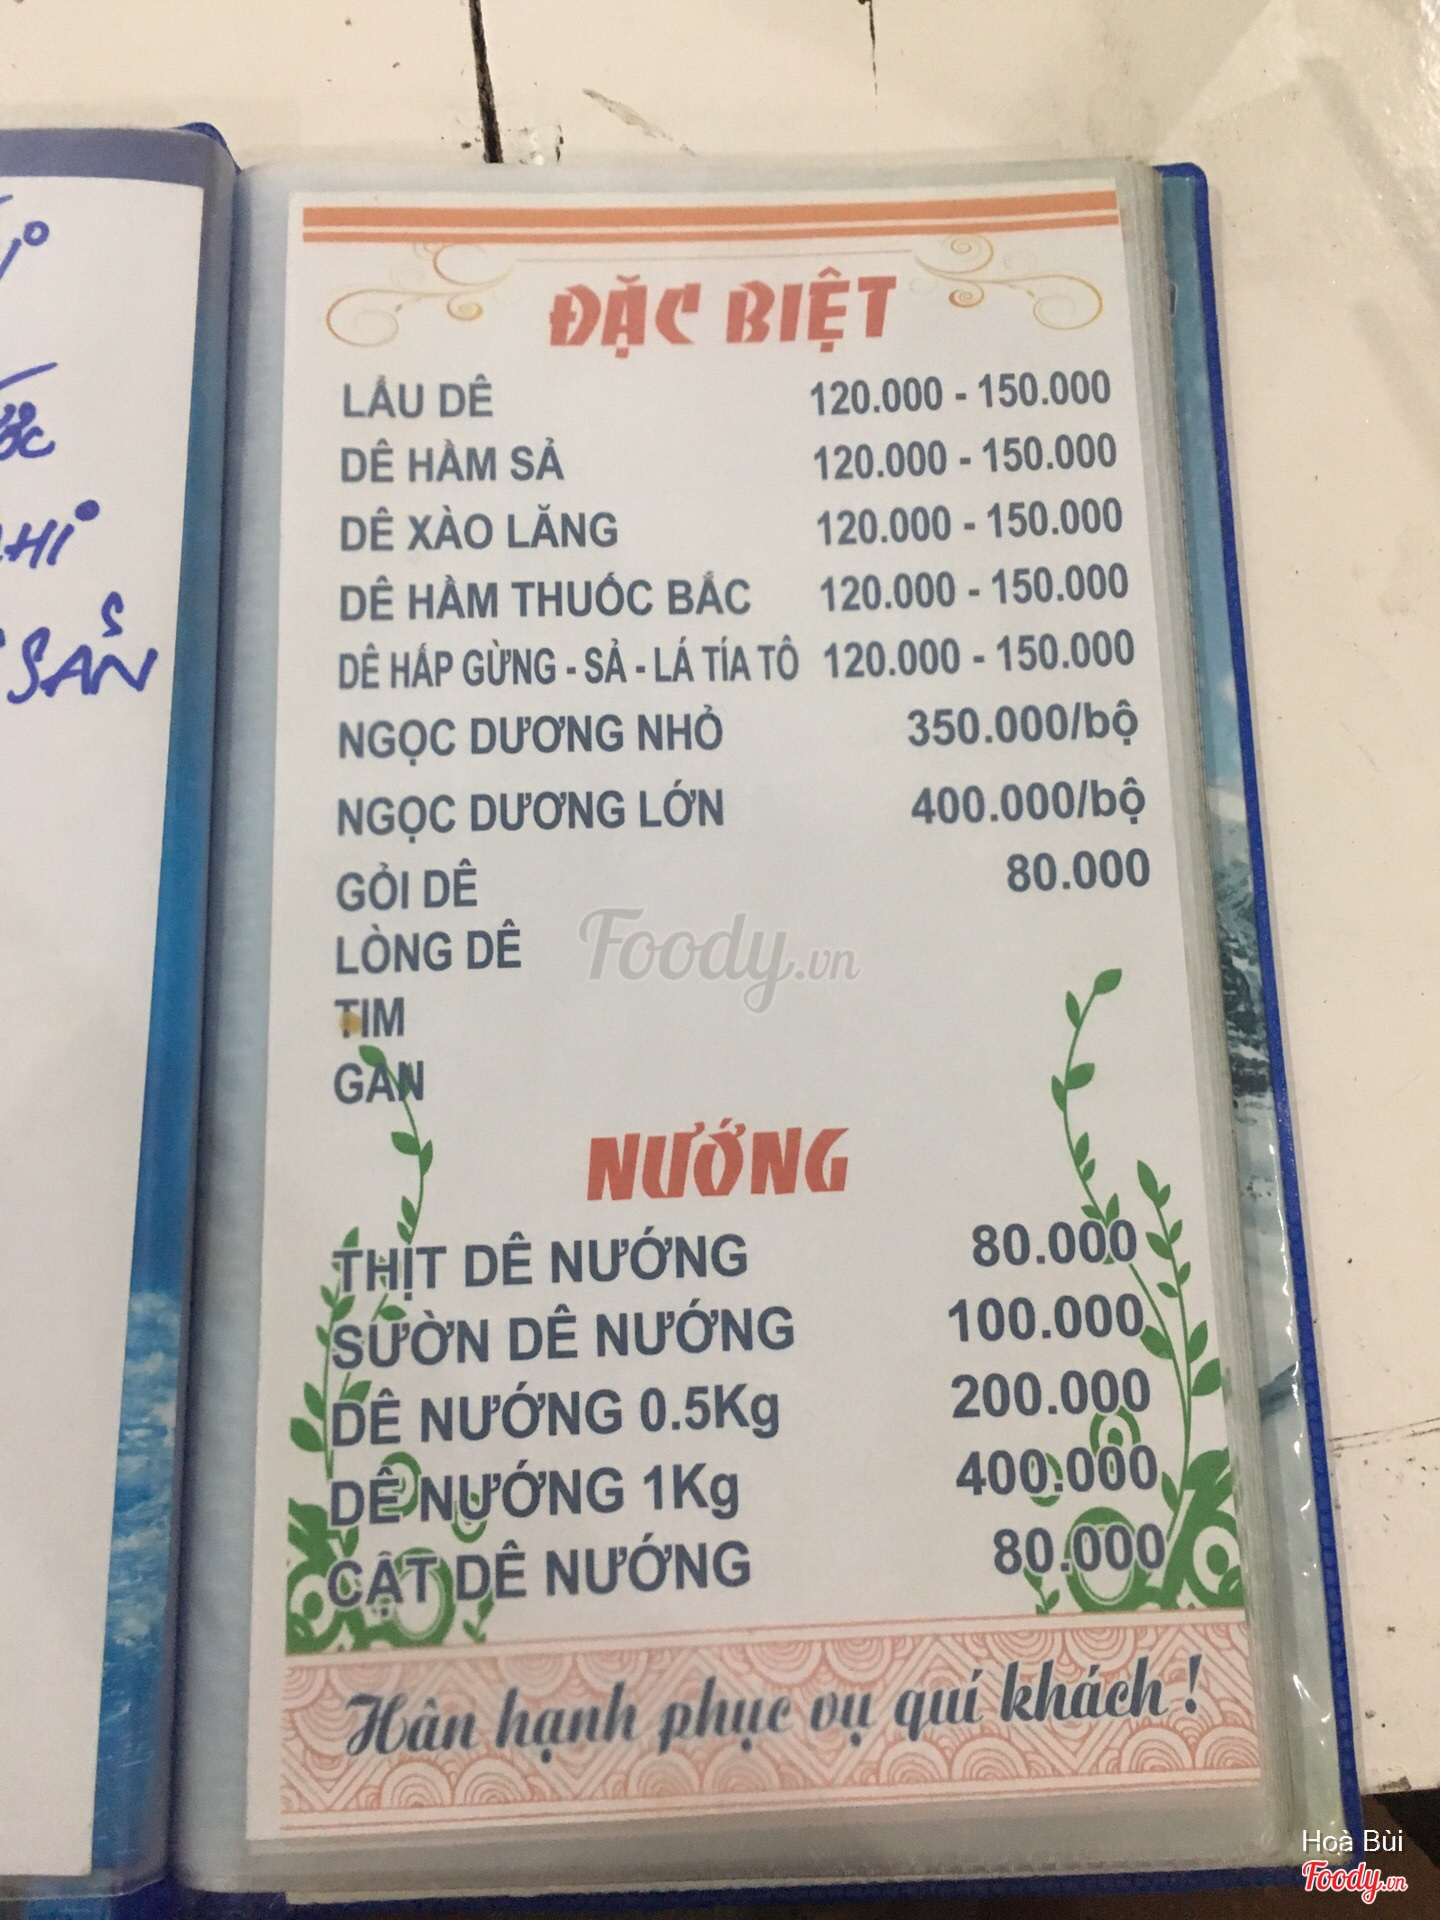 ĐẶC BIỆT
LẨU DÊ 120.000 - 150.000
DÊ HẦM SẢ 120.000 - 150.000
DÊ XÀO LĂNG 120.000 - 150.000
DÊ HẦM THUỐC BẮC 120.000 - 150.000
DÊ HẤP GỪNG - SẢ - LÁ TÍA TÔ 120.000 - 150.000
NGỌC DƯƠNG NHỎ 350.000/bộ
NGỌC DƯƠNG LỚN 400.000/bộ
GỎI DÊ 80.000
LÒNG DÊ
Foody.vn
TIM
GAN
NƯỚNG
THỊT DÊ NƯỚNG 80.000
SƯỜN DÊ NƯỚNG 100.000
DÊ NƯỚNG 0.5Kg 200.000
DÊ NƯỚNG 1Kg 400.000
CẬT DÊ NƯỚNG 80.000
Hân hạnh phục vụ quí khách !
Hoà Bùi
Foody.vn